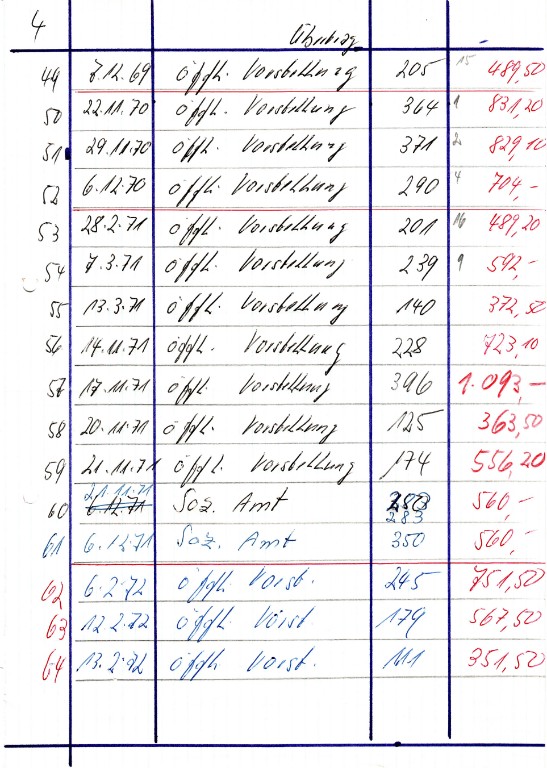 4
Übertrag
49 7.12.69 öffl. Vorstellung 205 15 489,50
50 22.11.70 öffl. Vorstellung 364 1 831,20
51 29.11.70 öffl. Vorstellung 371 2 829,10
52 6.12.70 öffl. Vorstellung 290 4 704,-
53 28.2.71 öffl. Vorstellung 201 16 489,20
54 7.3.71 öffl. Vorstellung 239 9 592,-
55 13.3.71 öffl. Vorstellung 140 372,50
56 14.11.71 öffl. Vorstellung 228 723,10
57 17.11.71 öffl. Vorstellung 396 1.093,-
58 20.11.71 öffl. Vorstellung 125 363,50
59 21.11.71 öffl. Vorstellung 174 556,20
21.11.71
60 6.12.71 Soz. Amt 283 560,-
283
61 6.12.71 Soz. Amt 350 560,-
62 6.2.72 öffl. Vorst. 245 751,50
63 12.2.72 öffl. Vorst. 179 567,50
64 13.2.72 öffl. Vorst. 111 351,50